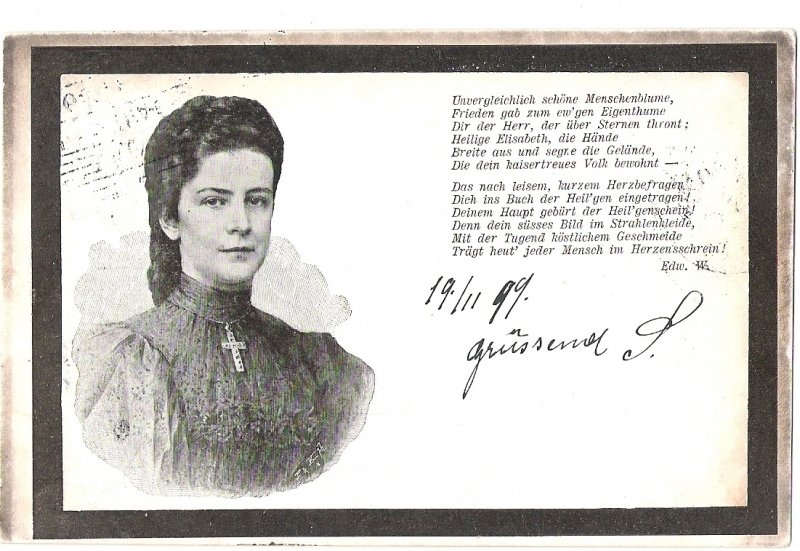 Unvergleichlich schöne Menschenblume,
Frieden gab zum ew'gen Eigenthume
Dir der Herr, der über Sternen thront:
Heilige Elisabeth, die Hände
Breite aus und segne die Gelände,
Die dein kaisertreues Volk bewohnt —
Das nach leisem, kurzem Herzbefragen
Dich ins Buch der Heil'gen eingetragen!
Deinem Haupt gebürt der Heil'genschein!
Denn dein süsses Bild im Strahlenkleide,
Mit der Tugend köstlichem Geschmeide
Trägt heut' jeder Mensch im Herzensschrein!
Edw. W.
19./11 99.
grüssend S.